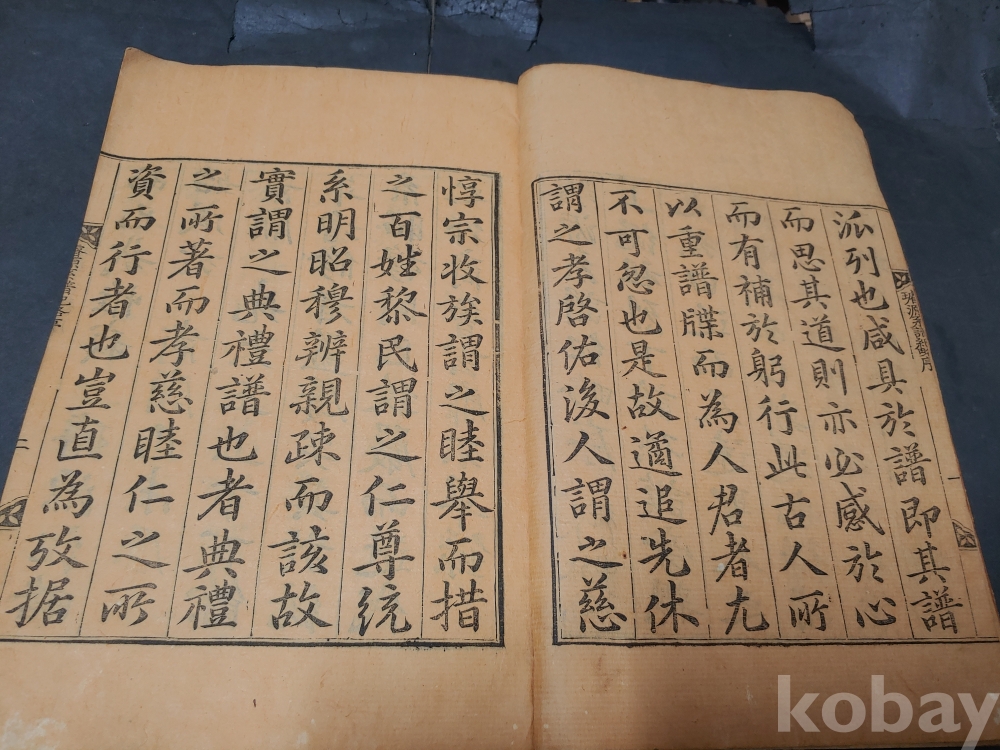 派列也咸具於譜即其譜
而思其道則亦必感於心
而有補於躬行此古人所
以重譜牒而為人君者尤
不可忽也是故遹追先休
謂之孝啓佑後人謂之慈
惇宗收族謂之睦舉而措
之百姓黎民謂之仁尊統
系明昭穆辨親疎而該故
實謂之典禮譜也者典禮
之所著而孝慈睦仁之所
資而行者也豈直為攷据
一
二
kobay